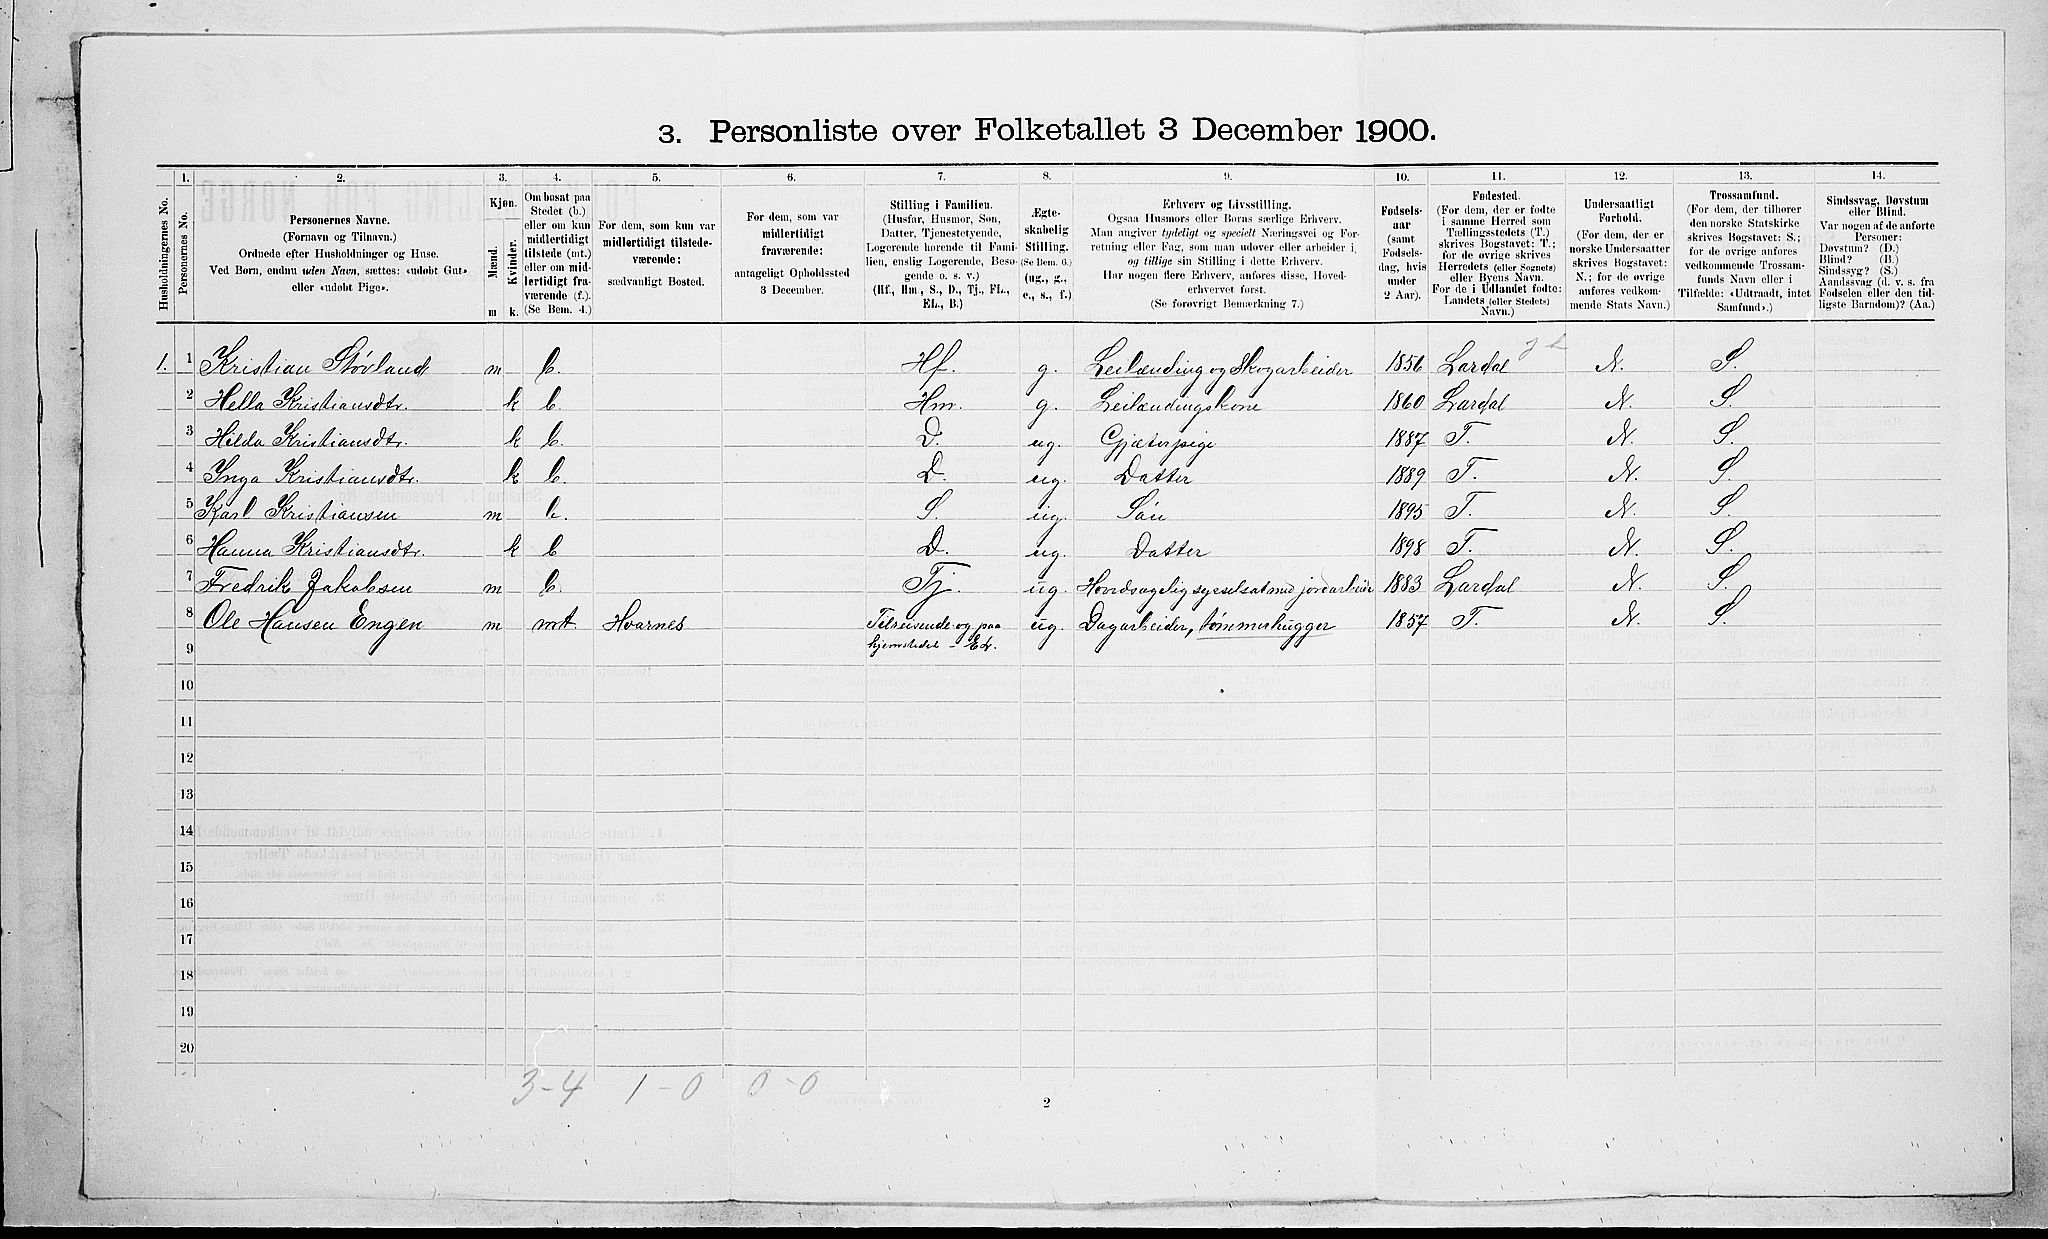 3. Personliste over Folketallet 3 December 1900.
Husholdningernes No.
1.
Personernes No.
2.
Personernes Navne.
(Fornavn og Tilnavn.)
Ordnede efter Husholdninger og Huse.
Ved Børn, endnu uden Navn, sættes: «udøbt Gut»
eller «udøbt Pige».
3.
Kjøn.
Mænd.
Kvinder.
m k.
4.
Om bosat paa
Stedet (b.)
eller om kun
midlertidigt
tilstede (mt.)
eller om mid-
lertidigt fra-
værende (f.).
(Se Bem. 4.)
5.
For dem, som kun var
midlertidigt tilstede-
værende:
sædvanligt Bosted.
6.
For dem, som var
midlertidigt
fraværende:
antageligt Opholdssted
3 December.
7.
Stilling i Familien.
(Husfar, Husmor, Søn,
Datter, Tjenestetyende,
Logerende hørende til Fami-
lien, enslig Logerende, Besø-
gende o. s. v.)
(Hf., Hm., S., D., Tj., FL.,
EL., B.)
8.
Ægte-
skabelig
Stilling.
(Se Bem. 6.)
(ug., g.,
e., s., f.)
9.
Erhverv og Livsstilling.
Ogsaa Husmors eller Børns særlige Erhverv.
Man angiver tydeligt og specielt Næringsvei og For-
retning eller Fag, som man udøver eller arbeider i,
og tillige sin Stilling i dette Erhverv.
Har nogen flere Erhverv, anføres disse, Hoved-
erhvervet først.
(Se forøvrigt Bemærkning 7.)
10.
Fødsels-
aar
(samt
Fødsels-
dag, hvis
under
2 Aar).
11.
Fødested.
(For dem, der er fødte
i samme Herred som
Tællingsstedets (T.)
skrives Bogstavet: T.;
for de øvrige skrives
Herredets (eller Sognets)
eller Byens Navn.
For de i Udlandet fødte:
Landets (eller Stedets)
Navn.)
12.
Undersaatligt
Forhold.
(For dem, der er
norske Undersaatter
skrives Bogstavet:
N.; for de øvrige
anføres vedkom-
mende Stats Navn.)
13.
Trossamfund.
(For dem, der tilhører
den norske Statskirke
skrives Bogstavet: S.;
for de øvrige anføres
vedkommende Trossam-
funds Navn eller i
Tilfælde: «Udtraadt, intet
Samfund».)
14.
Sindssvag, Døvstum
eller Blind.
Var nogen af de anførte
Personer:
Døvstum? (D.)
Blind? (B.)
Sindssyg? (S.)
Aandssvag (d. v. s. fra
Fødselen eller den tid-
ligste Barndom)? (Aa.)
1. 1 Kristian Støvland m b. Hf. g. Leilænding og Skogarbeider 1856 Lardal N. S.
2 Hella Kristiansdtr. k b. Hm. g. Leilændingskone 1860 Lardal N. S.
3 Hilda Kristiansdtr. k b. D. ug. Gjæterpige 1887 T. N. S.
4 Inga Kristiansdtr. k b. D. ug. Datter 1889 T. N. S.
5 Karl Kristiansen m b. S. ug. Søn 1895 T. N. S.
6 Hanna Kristiansdtr. k b D. ug. Datter 1898 T. N. S.
7 Fredrik Jakobsen m b. Tj. ug. Hovedsagelig sysselsat med jordarbeide 1883 Lardal N. S.
8 Ole Hansen Engen m mt. Hvarnes Tilreisende og paa ug. Dagarbeider, tømmerhugger 1857 T. N. S.
9 hjemstedet – EL.
10
11
12
13
14
15
16
17
18
19
20
3-4 1-0 0-0
2